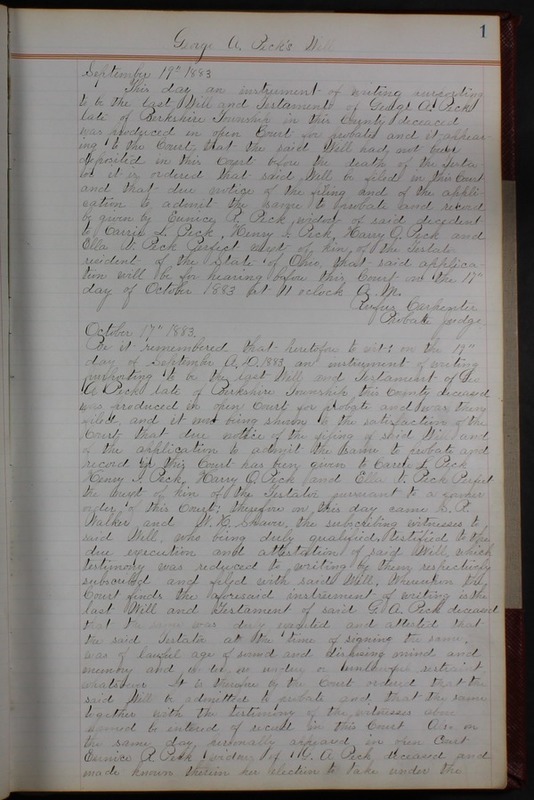 1
George A. Peck's Will
September 19th 1883
This day an instrument of writing purporting
to be the last Will and Testament of George A. Peck
late of Berkshire Township in this County deceased
was produced in open Court for probate and it appear-
ing to the Court, that the said Will had not been
deposited in this Court before the death of the Testa-
tor it is ordered that said Will be filed in this Court
and that due notice of the filing and of the appli-
cation to admit the same to probate and record
be given by Eunice R. Peck, widow of said decedent
to Carrie L. Peck, Henry J. Peck, Harry O. Peck and
Ella V. Peck Perfect next of kin, of the Testator
resident of the State of Ohio, that said applica
tion will be for hearing before this Court on the 17th
day of October 1883 at 11 oclock A. M.
Rufus Carpenter
Probate judge
October 17th 1883.
Be it remembered that heretofore to wit: on the 19th
day of September A. D. 1883 an instrument of writing
purporting to be the last Will and Testament of Geo
A. Peck late of Berkshire Township this County deceased
was produced in open Court for probate and was then
filed, and it now being shown to the satisfaction of the
Court, that due notice of the filing of said Will and
of the application to admit the same to probate and
record in this Court has been given to Carrie L. Peck
Henry J. Peck, Harry O. Peck and Ella V. Peck Perfect
the next of kin of the Testator pursuant to a former
order of this Court: therefore on this day came
Walker and the subscribing witnesses to
said Will, who being duly qualified, testified to the
due execution and attestation of said Will, which
testimony was reduced to writing by them respectively
subscribed and filed with said Will, Whereupon the
Court finds the aforesaid instrument of writing is the
last Will and Testament of said G. A. Peck deceased
that the same was duly executed and attested that
the said Testator at the time of signing the same,
was of lawful age of sound and disposing mind and
memory and in under or unlawful restraint
whatsoever It is therefore by the Court ordered that the
said Will be admitted to probate and, that the same
together with the testimony of the witnesses above
named be entered of record in this Court Also on
the same day, personally appeared in open Court
Eunice R. Peck widow of G. A. Peck, deceased and
made known therein her election to take under the